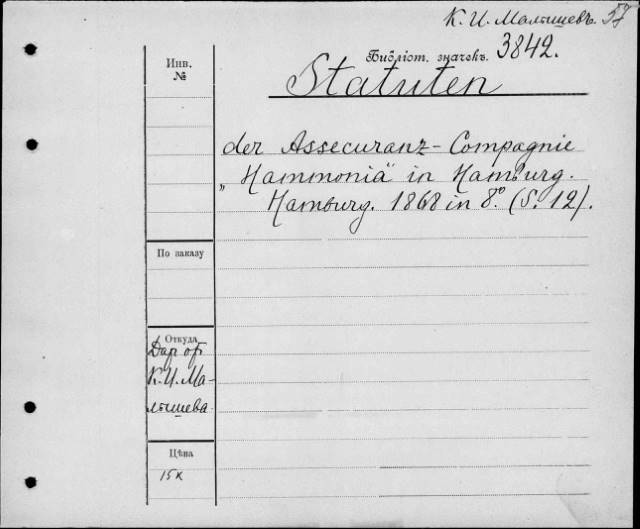 К. И. Малышевъ. 57
Библіот. значекъ. 3842.
Инв.
№
Statuten
der Assecuranz-Compagnie
„Hammonia" in Hamburg.
Hamburg. 1868 in 8º. (S. 12).
По заказу
Откуда
Дар от
К. И. Ма-
лышева
Цѣна
15к